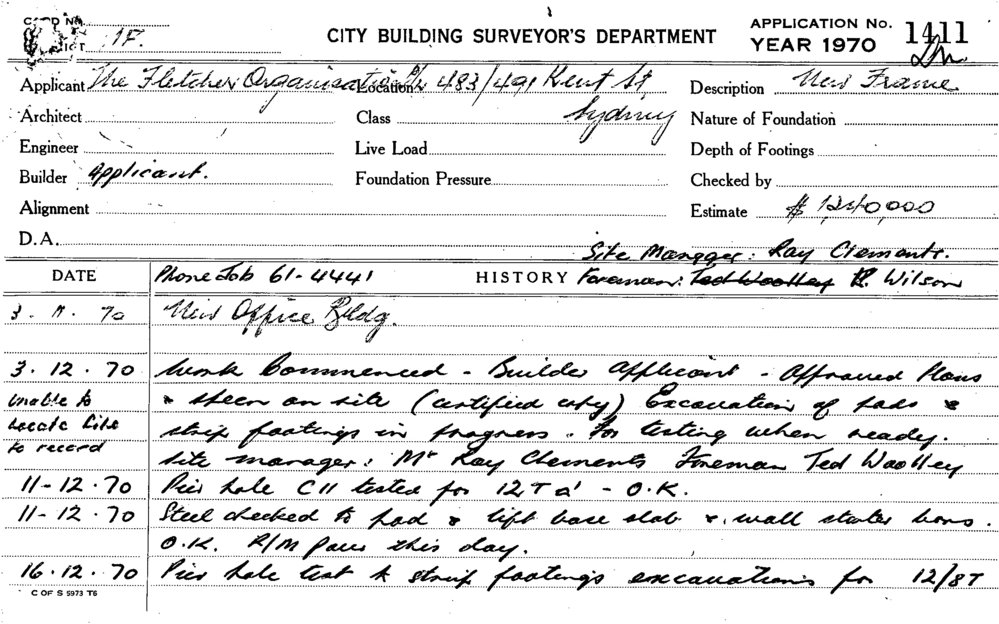 CARD No.
DISTRICT 1F.
CITY BUILDING SURVEYOR'S DEPARTMENT
APPLICATION No. 1411
YEAR 1970
Applicant The Fletcher Organisation P/L Location 483/491 Kent St, Description New Frame
Architect Class Sydney Nature of Foundation
Engineer Live Load Depth of Footings
Builder Applicant. Foundation Pressure Checked by
Alignment Estimate $ 1,240,000
D.A. Site Manager: Ray Clements.
DATE Phone Job 61-4441 HISTORY Foreman: Ted Woolley R. Wilson
3. 11. 70 New Office Bldg.
3. 12. 70 Work Commenced - Builder Applicant - Approved Plans
unable to & steen on site (certified copy) Excavation of pads &
locate file strip footings in progress. For testing when ready.
to record site manager: Mr Ray Clements Foreman Ted Woolley
11-12.70 Pier hole C11 tested for 12T - O.K.
11-12.70 Steel checked to pad & lift base slab & wall starter bars.
O.K. R/M Pour this day.
16.12.70 Pier hole test & strip footings excavations for 12/8T
C OF S 5973 T6